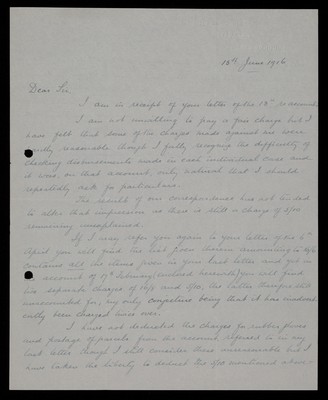 15th June 1916
Dear Sir,
I am in receipt of your letter of the 13th re account.
I am not unwilling to pay a fair charge but I
have felt that some of the charges made against me were
hardly reasonable though I fully recognise the difficulty of
checking disbursements made in each individual case and
it was, on that account, only natural that I should
repeatedly ask for particulars.
The result of our correspondence has not tended
to alter that impression as there is still a charge of
remaining unexplained.
If I may refer you again to your letter of the 6th
April you will find the last four items amounting to
contains all the items given in your last letter and yet in
the account of 17th February (enclosed herewith) you will find
two separate charges of and the latter therefore still
unaccounted for, my only conjecture being that it has inadvert-
ently been charged twice over.
I have not deducted the charges for rubber gloves
and postage of parcels from the account referred to in my
last letter though I still consider these unreasonable but I
have taken the liberty to deduct the mentioned above